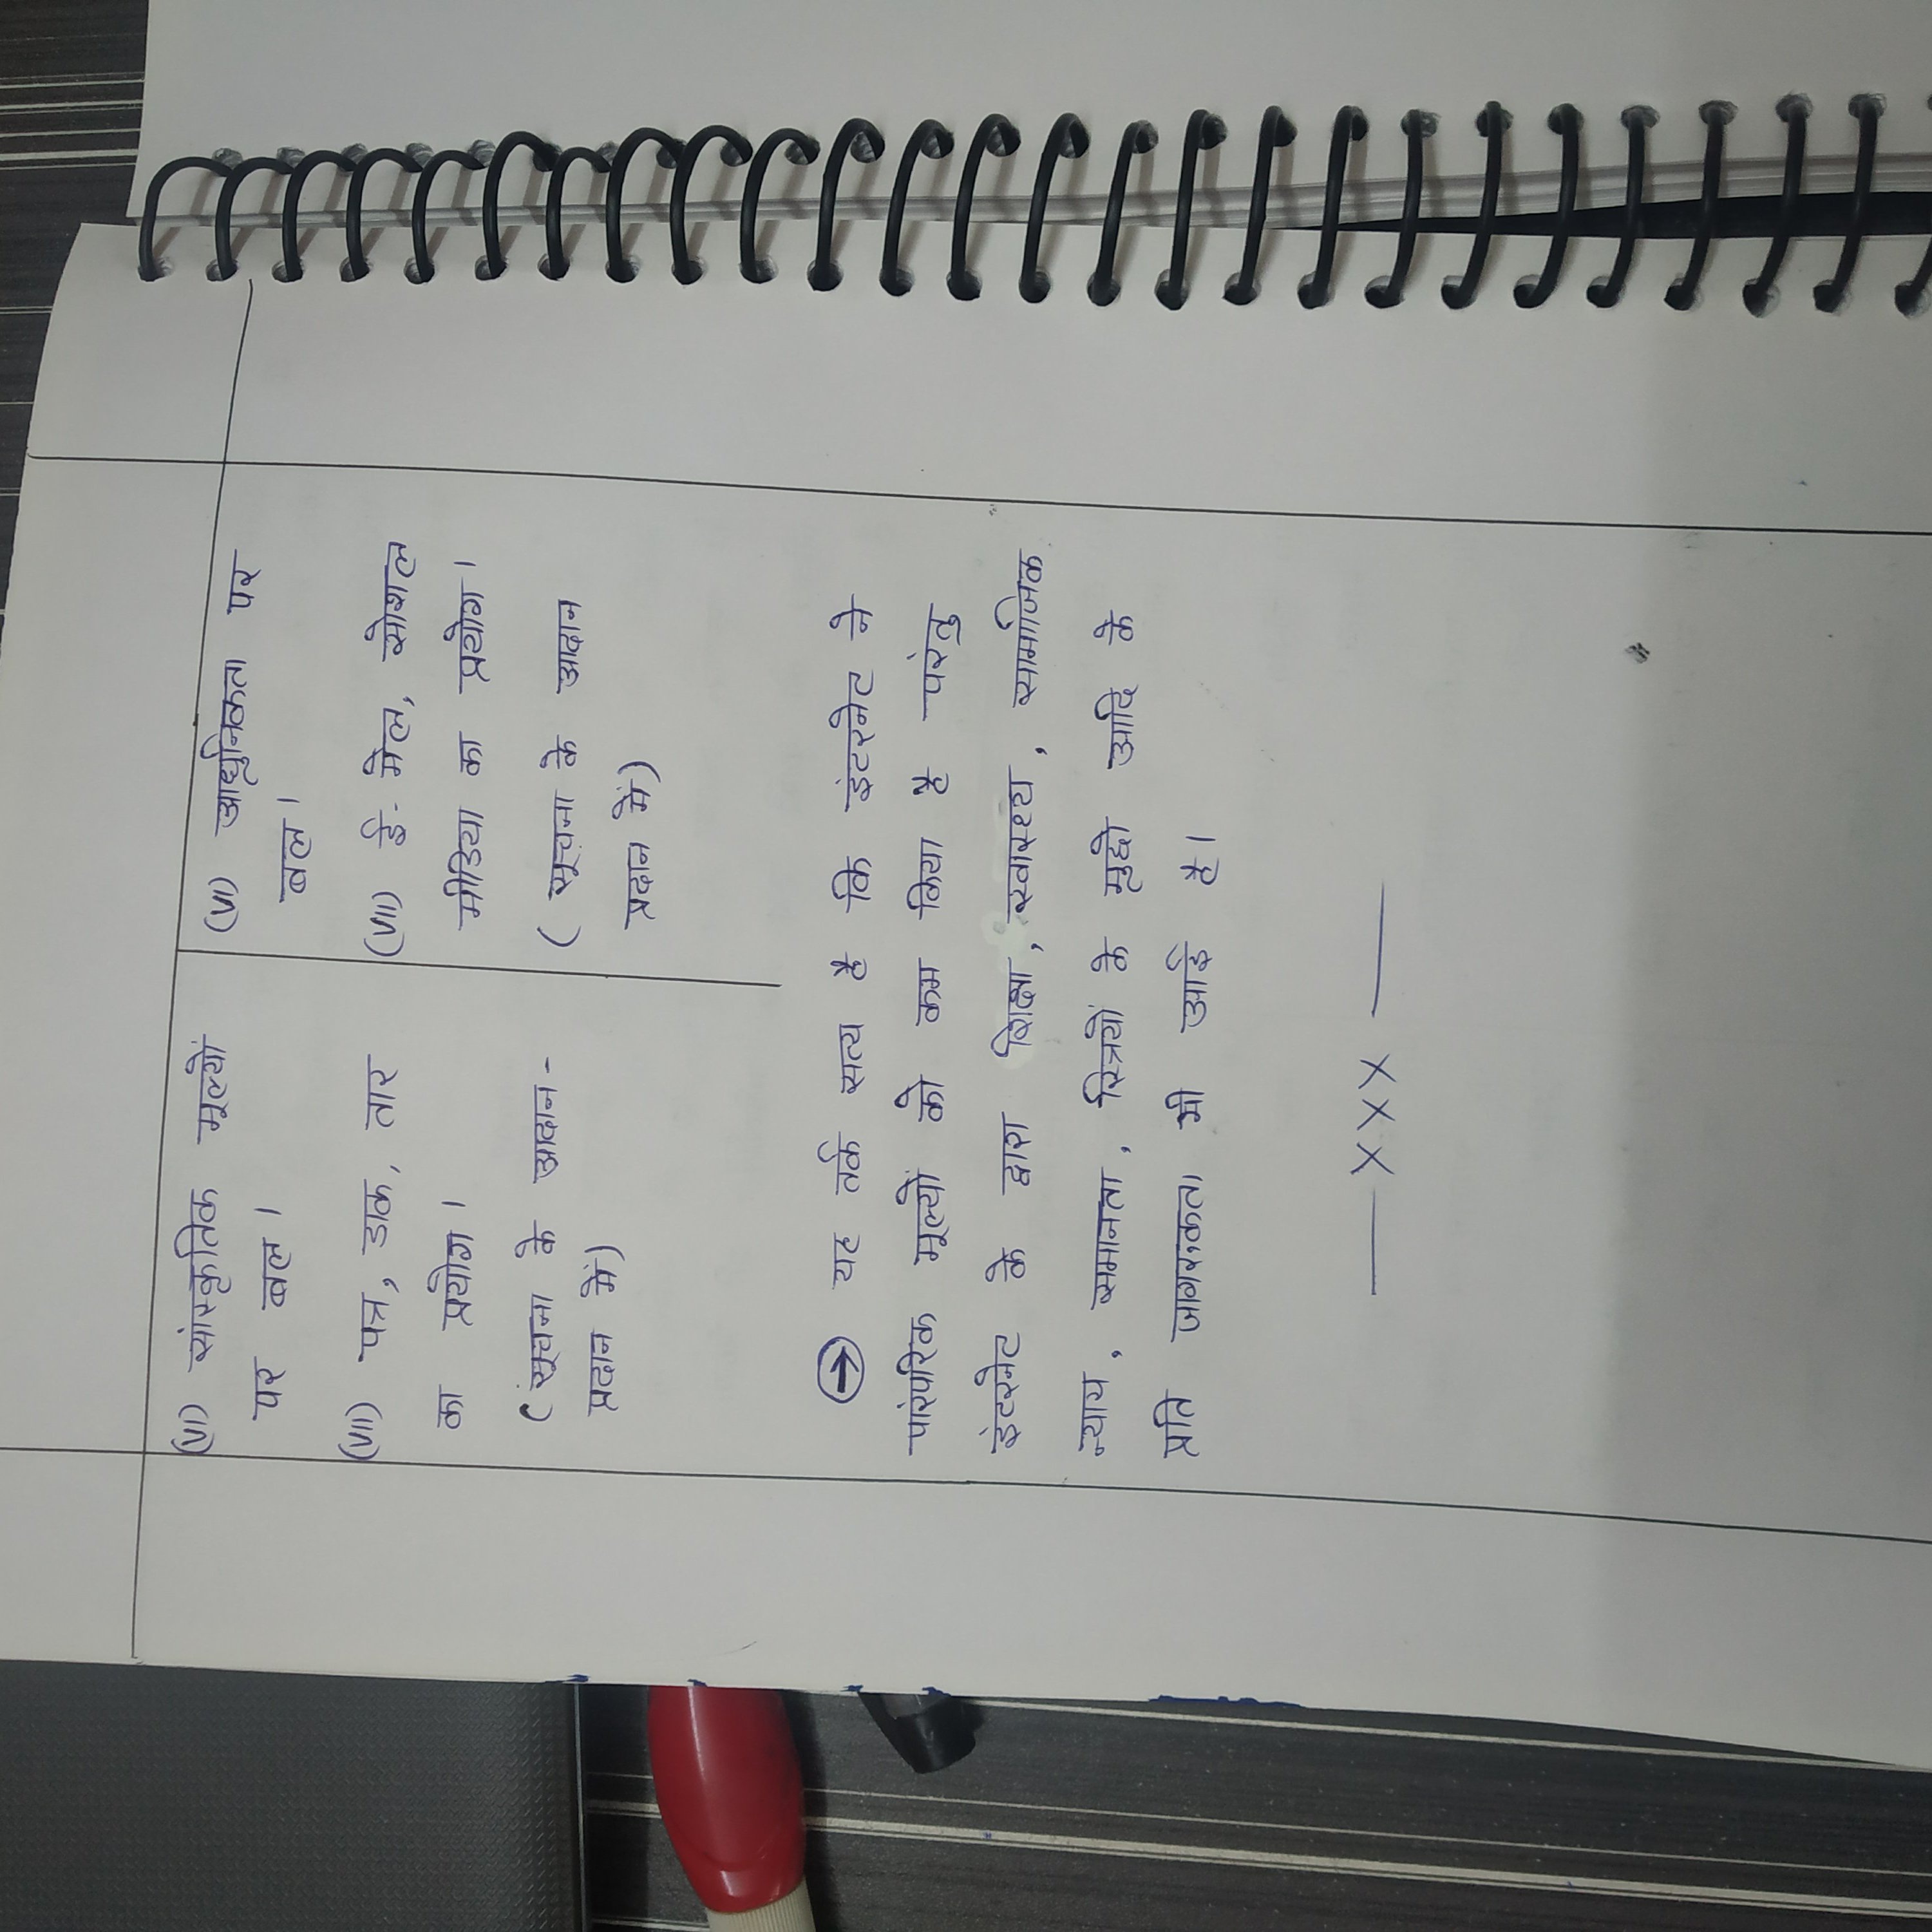 (VI) सांस्कृतिक मूल्यों
पर बल।
(VII) पत्र, डाक, तार
का प्रयोग।
(सूचना के आदान-
प्रदान में)
(VI) आधुनिकता पर
बल।
(VII) ई-मेल, सोशल
मीडिया का प्रयोग।
(सूचना के आदान
प्रदान में)
→ यह तर्क सत्य है कि इंटरनेट ने
पारंपरिक मूल्यों को कम किया है परंतु
इंटरनेट के द्वारा शिक्षा, स्वास्थ्य, सामाजिक
न्याय, समानता, स्त्रियों के मुद्दो आदि के
प्रति जागरूकता भी आई है।
— XXX —